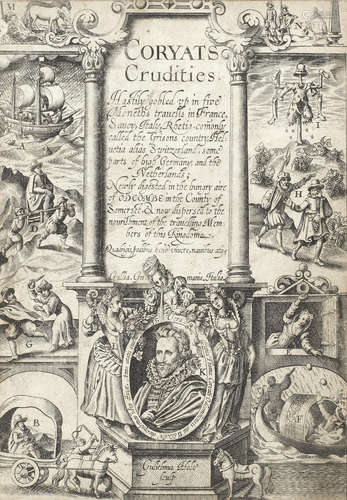 M
CORYATS
Crudities
Hastily gobled up in five
Moneths travells in France,
Savoy, Italy, Rhetia comonly
called the Grisons country, Hel-
vetia alias Switzerland, some
parts of high Germany, and the
Netherlands;
Newly digested in the hungry aire
of ODCOMBE in the County of
Somerset, & now dispersed to the
nourishment of the travelling Mem-
bers of this Kingdome.
H
D
Gallia
Italia
G
E
B
F
Gulielmus Hole
sculp